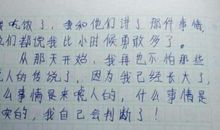 吃饭了，我和他们讲了那件事情，
们都说我比小时候勇敢多了。
从那天开始，我再也不怕那些
人的传统了，因为我已经长大了，
么事情是来吼人的，什么事情是
的，我自己会判断了！